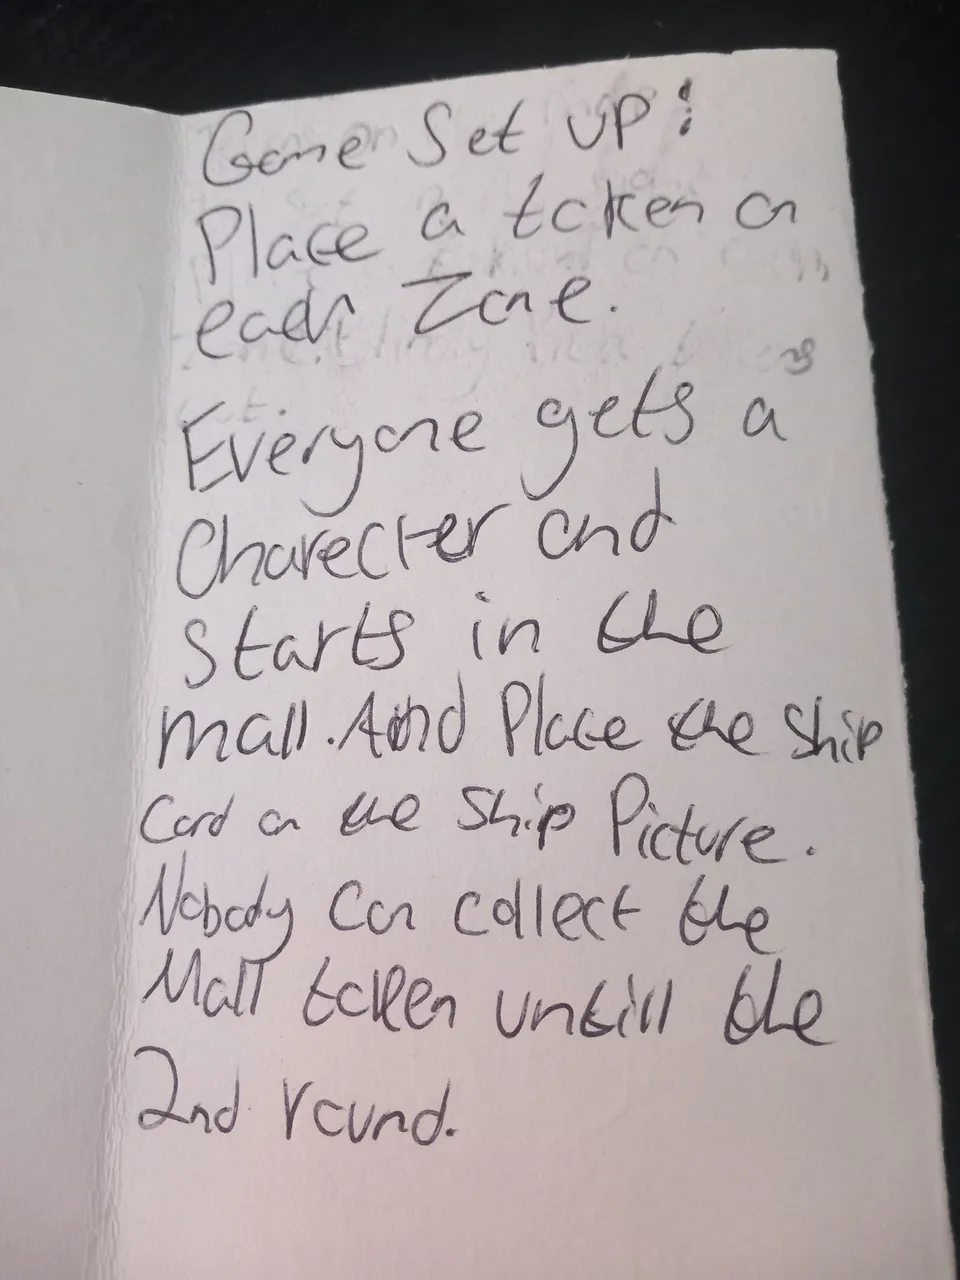 Game Set UP:
Place a token on
each Zone.
Everyone gets a
Charecter and
Starts in the
mall. And Place the Ship
Card on the Ship Picture.
Nobody Can collect the
Mall token untill the
2nd round.